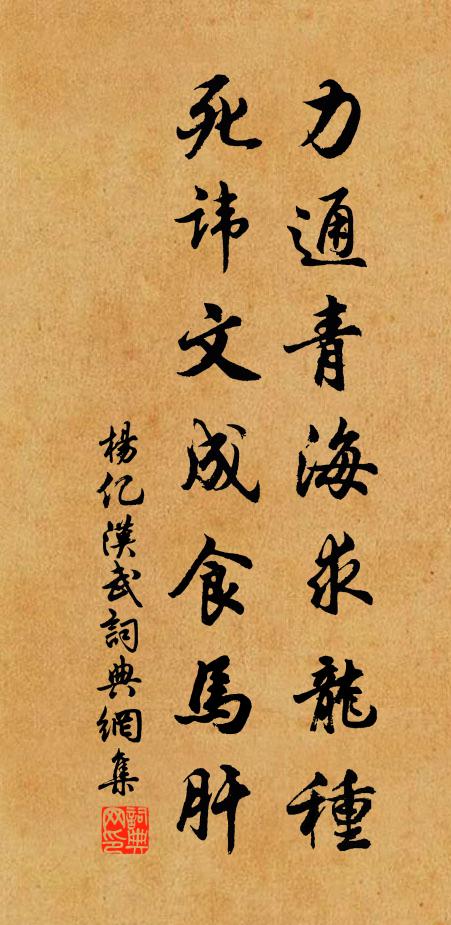 力通青海求龍種
死諱文成食馬肝
楊亿漢武詞典網集
詞典网印